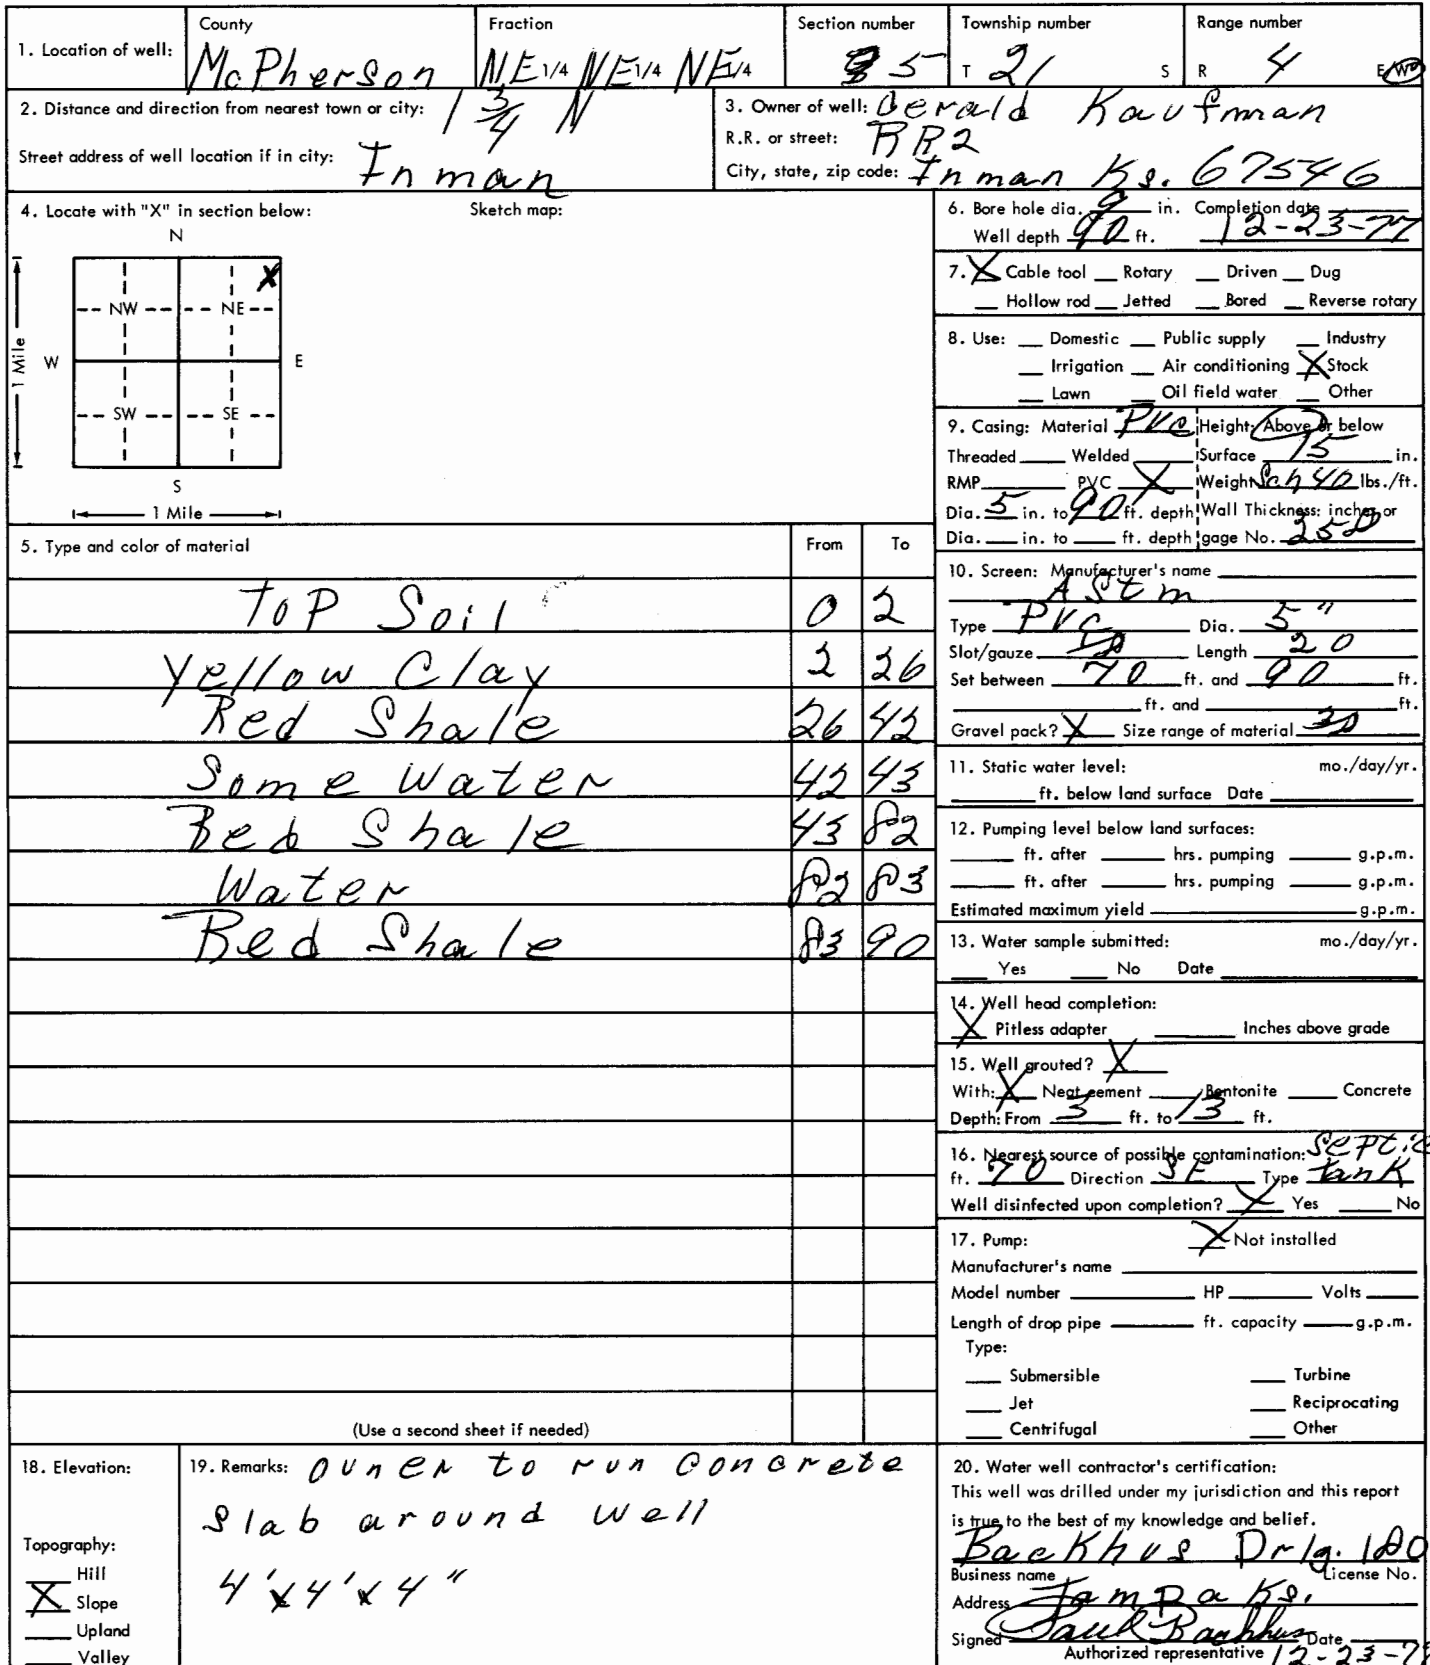 1. Location of well:
County
McPherson
Fraction
NE 1/4 NE 1/4 NE 1/4
Section number
5
Township number
T 21 S
Range number
R 4 E/W
2. Distance and direction from nearest town or city: 1 3/4 N
Street address of well location if in city: Inman
3. Owner of well: Gerald Kaufman
R.R. or street: RR2
City, state, zip code: Inman Ks. 67546
4. Locate with "X" in section below: Sketch map:
N
X
NW NE
W E
1 Mile
SW SE
S
1 Mile
5. Type and color of material From To
Top Soil 0 2
Yellow Clay 2 26
Red Shale 26 42
Some Water 42 43
Red Shale 43 82
Water 82 83
Red Shale 83 90
(Use a second sheet if needed)
6. Bore hole dia. 9 in. Completion date
Well depth 90 ft. 12-23-77
7. X Cable tool __ Rotary __ Driven __ Dug
__ Hollow rod __ Jetted __ Bored __ Reverse rotary
8. Use: __ Domestic __ Public supply __ Industry
__ Irrigation __ Air conditioning X Stock
__ Lawn __ Oil field water __ Other
9. Casing: Material PVC Height: Above or below
Threaded ____ Welded ____ Surface 15 in.
RMP ____ PVC X Weight Sch 40 lbs./ft.
Dia. 5 in. to 90 ft. depth Wall Thickness: inches or
Dia. ___ in. to ___ ft. depth gage No. 250
10. Screen: Manufacturer's name ____
AStm
Type PVC Dia. 5"
Slot/gauze ____ Length 20
Set between 70 ft. and 90 ft.
____ ft. and ____ ft.
Gravel pack? X Size range of material
11. Static water level: mo./day/yr.
____ ft. below land surface Date ____
12. Pumping level below land surfaces:
____ ft. after ____ hrs. pumping ____ g.p.m.
____ ft. after ____ hrs. pumping ____ g.p.m.
Estimated maximum yield ____ g.p.m.
13. Water sample submitted: mo./day/yr.
___ Yes ___ No Date ____
14. Well head completion:
X Pitless adapter ____ Inches above grade
15. Well grouted? X
With: X Neat cement ____ Bentonite ____ Concrete
Depth: From 3 ft. to 13 ft.
16. Nearest source of possible contamination: Septic
ft. 70 Direction SE Type tank
Well disinfected upon completion? X Yes ____ No
17. Pump: X Not installed
Manufacturer's name ____
Model number ____ HP ____ Volts ____
Length of drop pipe ____ ft. capacity ____ g.p.m.
Type:
___ Submersible ___ Turbine
___ Jet ___ Reciprocating
___ Centrifugal ___ Other
18. Elevation:
Topography:
___ Hill
X Slope
___ Upland
___ Valley
19. Remarks: Owner to run Concrete
Slab around Well
4' x 4' x 4"
20. Water well contractor's certification:
This well was drilled under my jurisdiction and this report
is true to the best of my knowledge and belief.
Backhus Drlg. 180
Business name License No.
Address Tampa Ks.
Signed Paul Backhus Date
Authorized representative 12-23-78